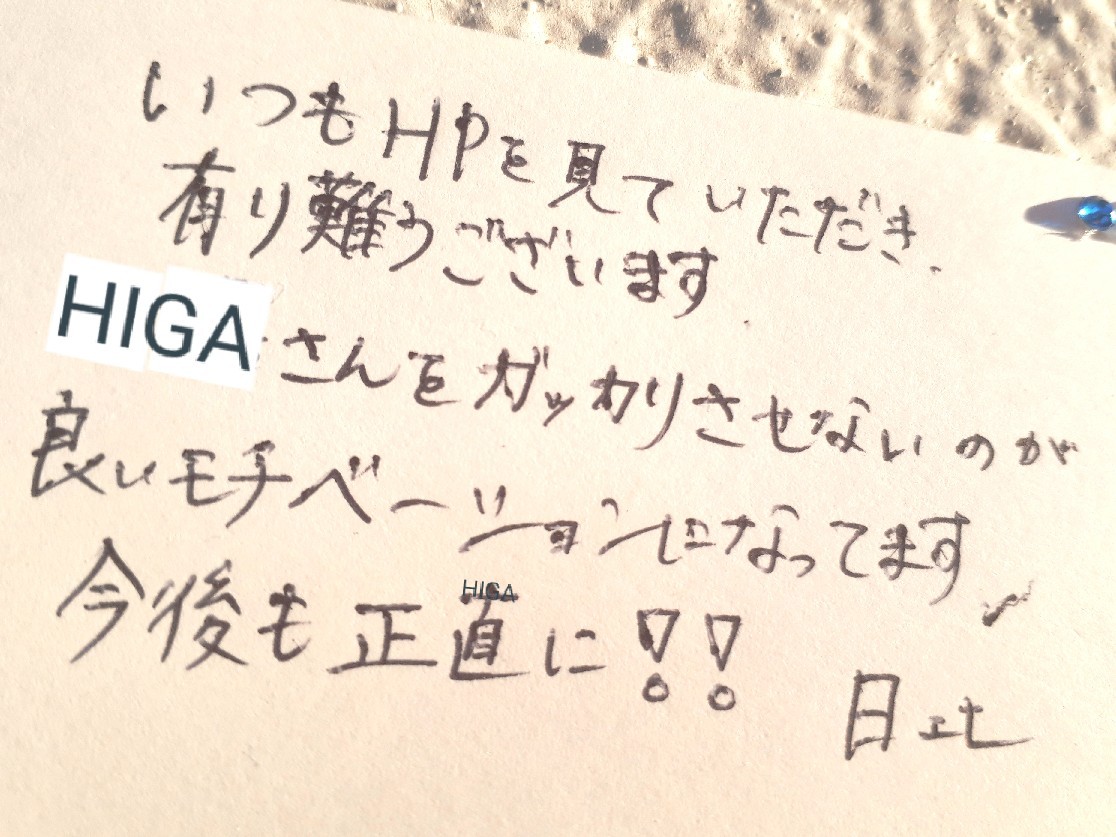 いつもHPを見ていただき、
有り難うございます
HIGAさんをガッカリさせないのが
良いモチベーションになってます
HIGA
今後も正直に!!
日比